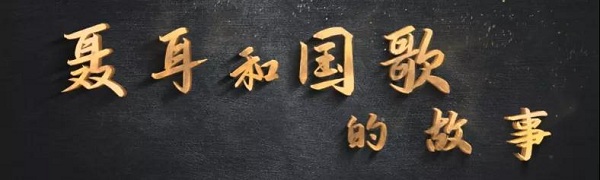 聂耳和国歌
的故事